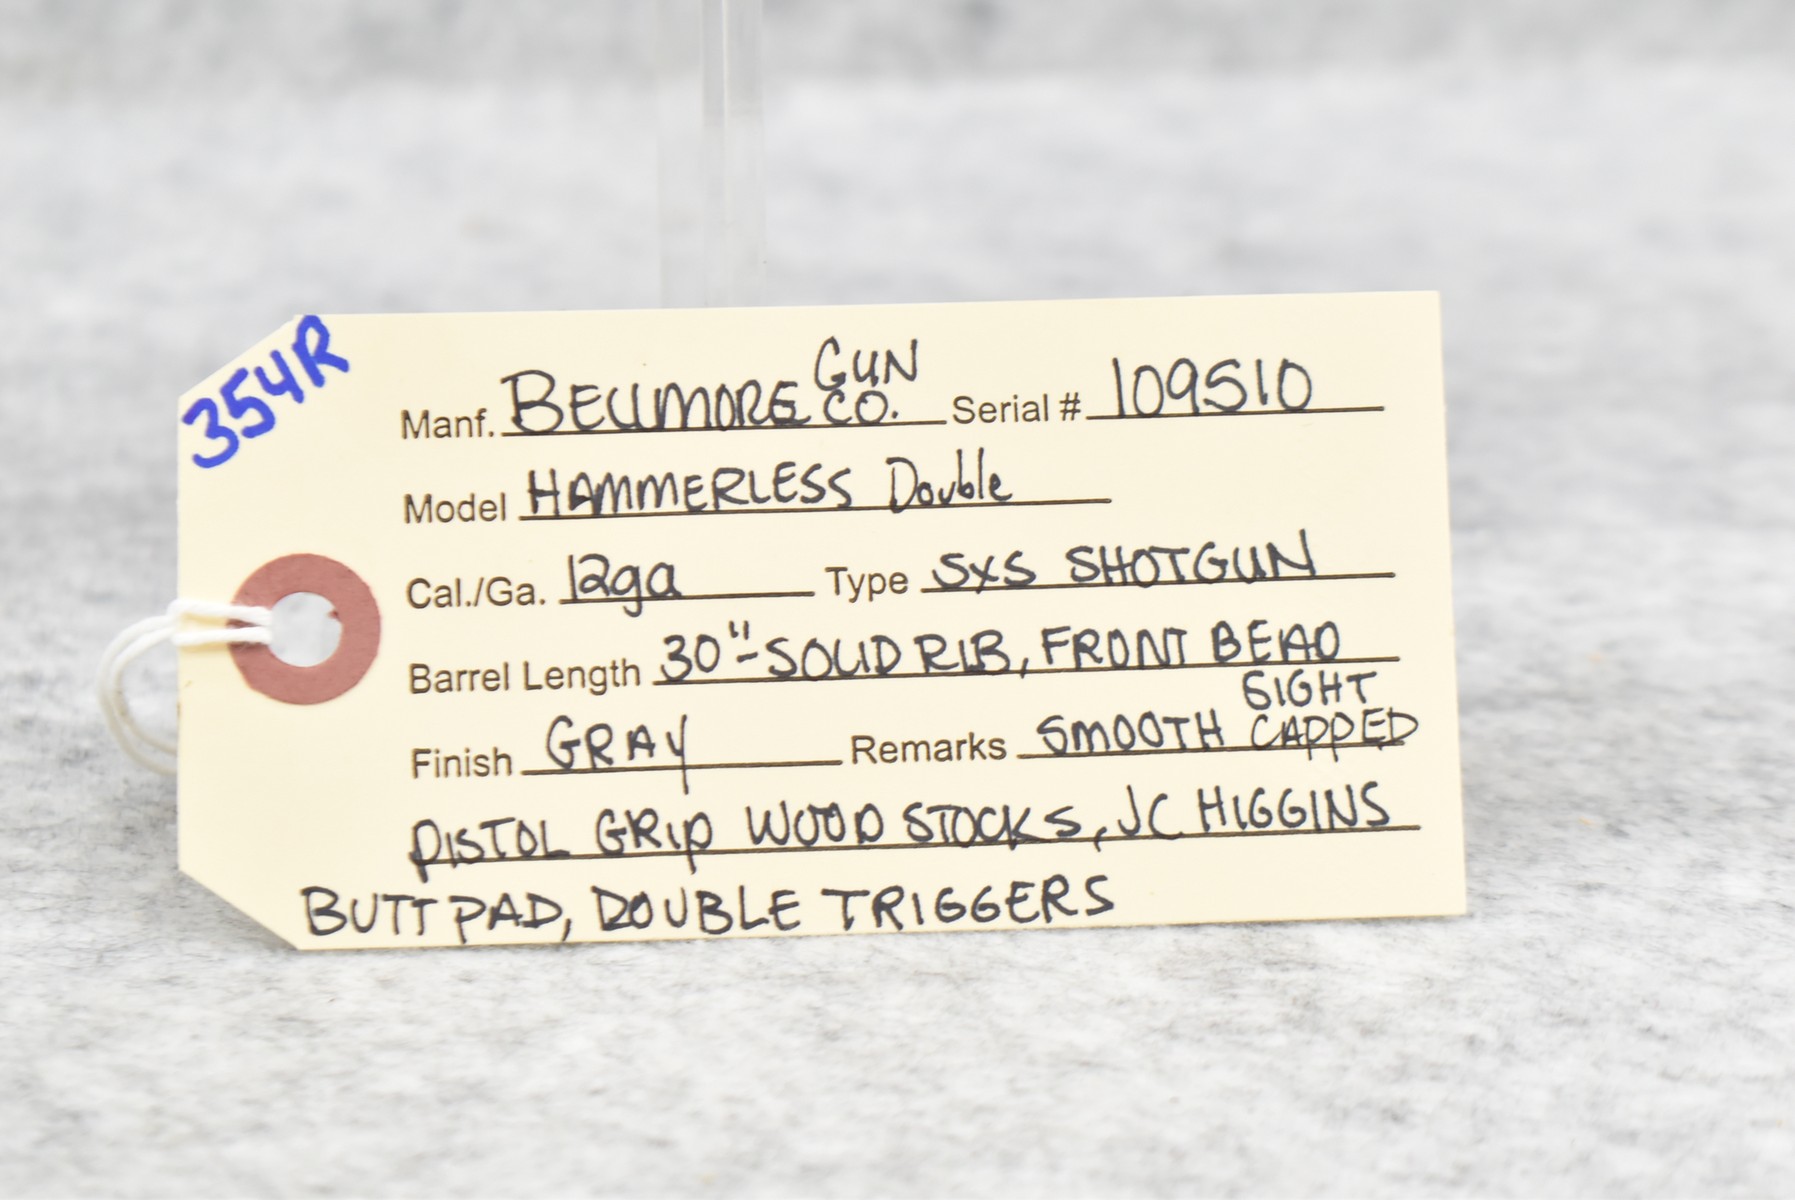 354R
Manf. BELLMORE GUN CO. Serial # 109510
Model HAMMERLESS Double
Cal./Ga. 12ga Type SXS SHOTGUN
Barrel Length 30"-SOLID RIB, FRONT BEAD
SIGHT
Finish GRAY Remarks SMOOTH CAPPED
PISTOL GRIP WOOD STOCKS, JC HIGGINS
BUTT PAD, DOUBLE TRIGGERS